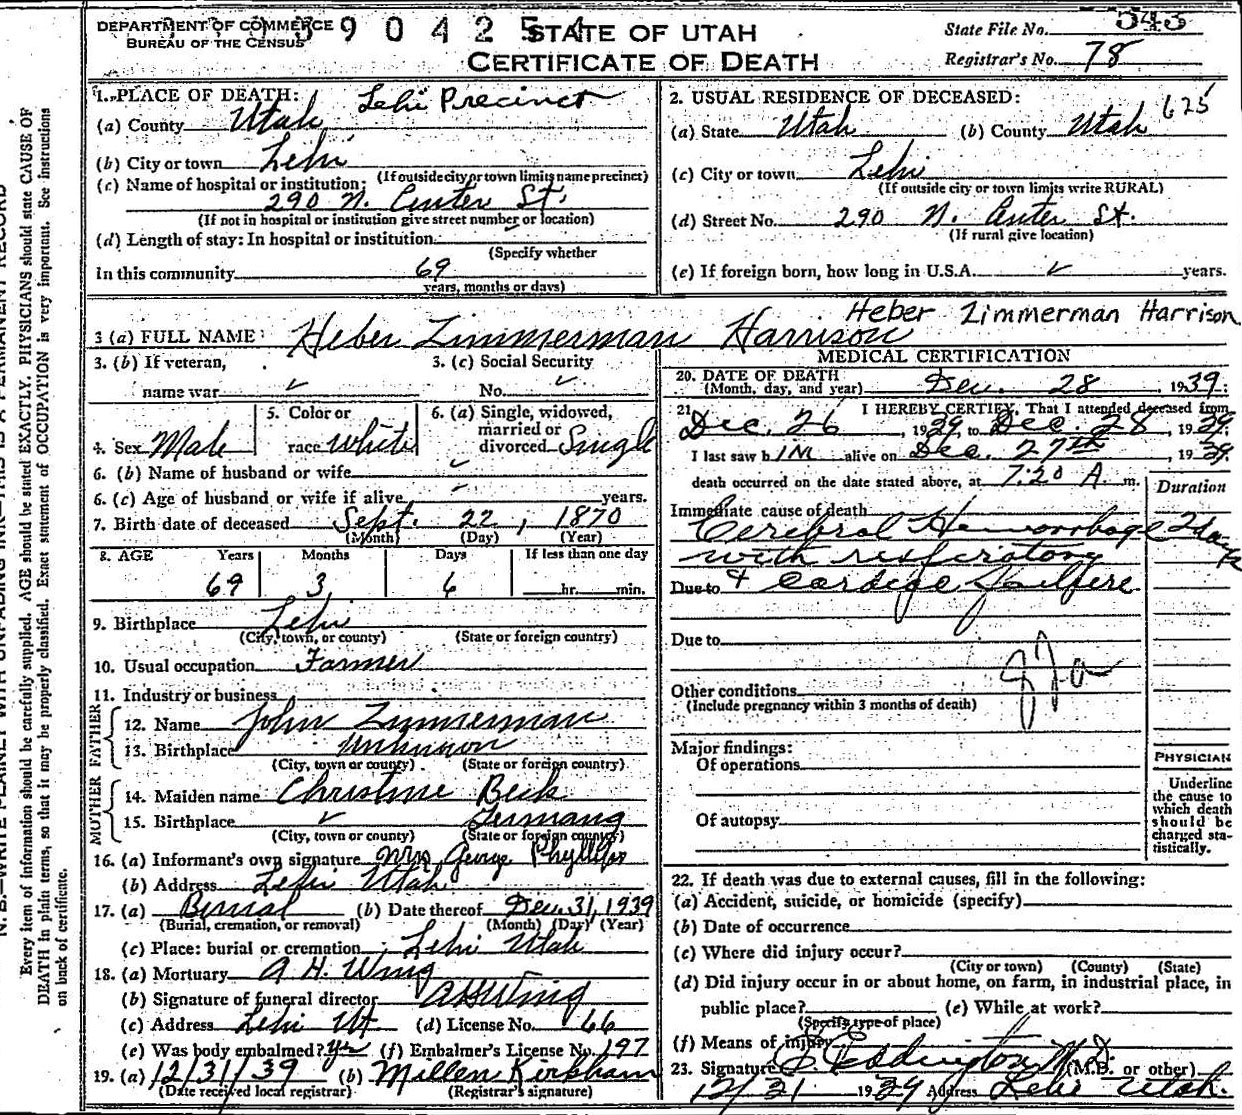 DEPARTMENT OF COMMERCE
BUREAU OF THE CENSUS
390425
STATE OF UTAH
CERTIFICATE OF DEATH
State File No. 543
Registrar's No. 78
1. PLACE OF DEATH: Lehi Precinct
(a) County Utah
(b) City or town Lehi
(If outside city or town limits name precinct)
(c) Name of hospital or institution:
290 N. Center St.
(If not in hospital or institution give street number or location)
(d) Length of stay: In hospital or institution
(Specify whether
In this community 69
years, months or days)
2. USUAL RESIDENCE OF DECEASED: 625
(a) State Utah (b) County Utah
(c) City or town Lehi
(If outside city or town limits write RURAL)
(d) Street No. 290 N. Center St.
(If rural give location)
(e) If foreign born, how long in U.S.A. ✓ years.
Heber Zimmerman Harrison
3 (a) FULL NAME: Heber Zimmerman Harrison
3. (b) If veteran, name war ✓
3. (c) Social Security No. ✓
4. Sex Male
5. Color or race white
6. (a) Single, widowed, married or divorced Single
6. (b) Name of husband or wife
6. (c) Age of husband or wife if alive years.
7. Birth date of deceased Sept. 22, 1870
(Month) (Day) (Year)
8. AGE Years Months Days If less than one day
69 3 6 hr. min.
9. Birthplace Lehi
(City, town, or county) (State or foreign country)
10. Usual occupation Farmer
11. Industry or business
FATHER
12. Name John Zimmerman
13. Birthplace Unknown
(City, town or county) (State or foreign country)
MOTHER
14. Maiden name Christine Beck
15. Birthplace ✓ Germany
(City, town or county) (State or foreign country)
16. (a) Informant's own signature Mrs George
(b) Address Lehi Utah
17. (a) Burial (b) Date thereof Dec. 31, 1939
(Burial, cremation, or removal) (Month) (Day) (Year)
(c) Place: burial or cremation Lehi Utah
18. (a) Mortuary A. H. Wing
(b) Signature of funeral director A H Wing
(c) Address Lehi Ut (d) License No. 66
(e) Was body embalmed? yes (f) Embalmer's License No. 197
19. (a) 12/31/39 (b) Millen Kirkham
(Date received local registrar) (Registrar's signature)
MEDICAL CERTIFICATION
20. DATE OF DEATH
(Month, day, and year) Dec. 28, 1939:
21. I HEREBY CERTIFY, That I attended deceased from
Dec. 26, 1939, to Dec. 28, 1939.
I last saw him alive on Dec. 27th, 1939
death occurred on the date stated above, at 7:20 A. m.
Duration
Immediate cause of death
Cerebral Hemorrhage 2 days
with respiratory
Due to & Cardiac Failure
Due to
Other conditions
(Include pregnancy within 3 months of death)
Major findings:
Of operations
Of autopsy
PHYSICIAN
Underline
the cause to
which death
should be
charged sta-
tistically.
22. If death was due to external causes, fill in the following:
(a) Accident, suicide, or homicide (specify)
(b) Date of occurrence
(c) Where did injury occur?
(City or town) (County) (State)
(d) Did injury occur in or about home, on farm, in industrial place, in
public place? (e) While at work?
(Specify type of place)
(f) Means of injury
23. Signature Eddington M.D. (M.D. or other)
12/31 1939 Address Lehi Utah.
N. B.—WRITE PLAINLY WITH UNFADING INK—THIS IS A PERMANENT RECORD
Every item of information should be carefully supplied. AGE should be stated EXACTLY. PHYSICIANS should state CAUSE OF
DEATH in plain terms, so that it may be properly classified. Exact statement of OCCUPATION is very important. See instructions
on back of certificate.